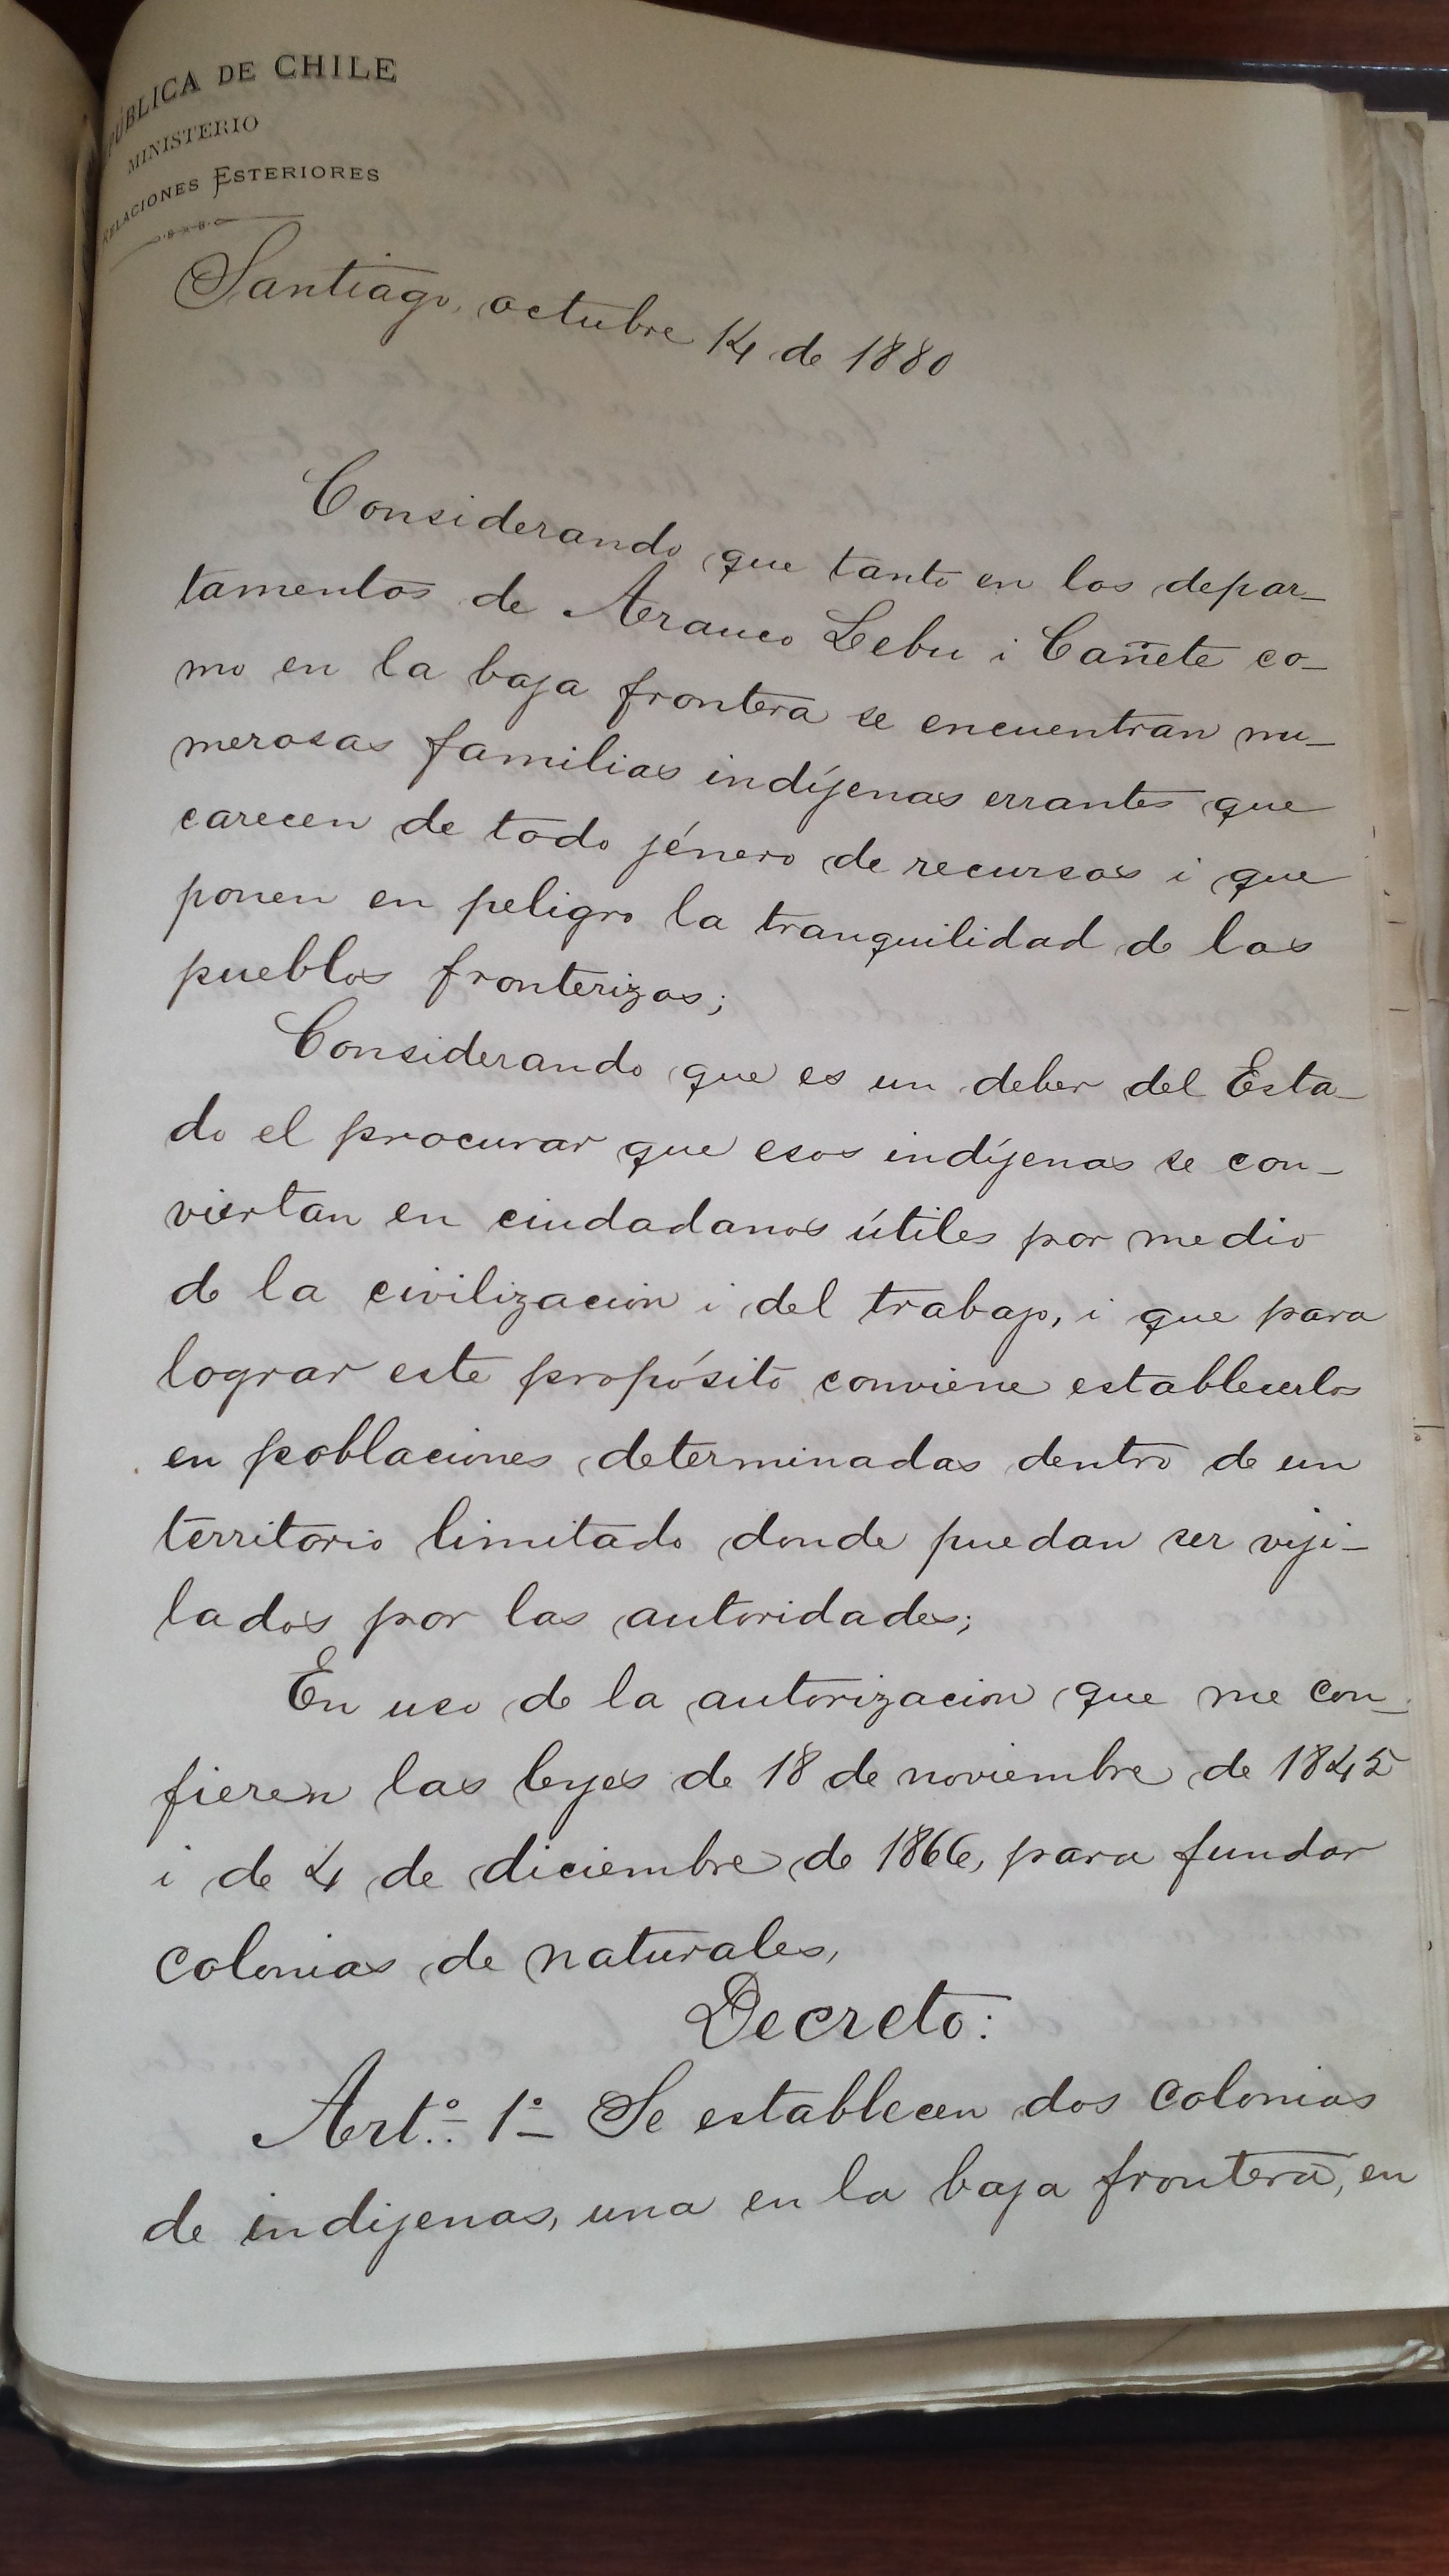 PÚBLICA DE CHILE
MINISTERIO
RELACIONES ESTERIORES
Santiago, octubre 14 de 1880
Considerando que tanto en los depar-
tamentos de Arauco Lebu i Cañete co-
mo en la baja frontera se encuentran nu-
merosas familias indíjenas errantes que
carecen de todo jénero de recursos i que
ponen en peligro la tranquilidad de los
pueblos fronterizos;
Considerando que es un deber del Esta-
do el procurar que esos indíjenas se con-
viertan en ciudadanos útiles por medio
de la civilizacion i del trabajo, i que para
lograr este propósito conviene establecerlos
en poblaciones determinadas dentro de un
territorio limitado donde puedan ser viji-
lados por las autoridades;
En uso de la autorizacion que me con-
fieren las leyes de 18 de noviembre de 1845
i de 4 de diciembre de 1866, para fundar
colonias de naturales,
Decreto:
Art.º 1º Se establecen dos colonias
de indijenas, una en la baja frontera, en